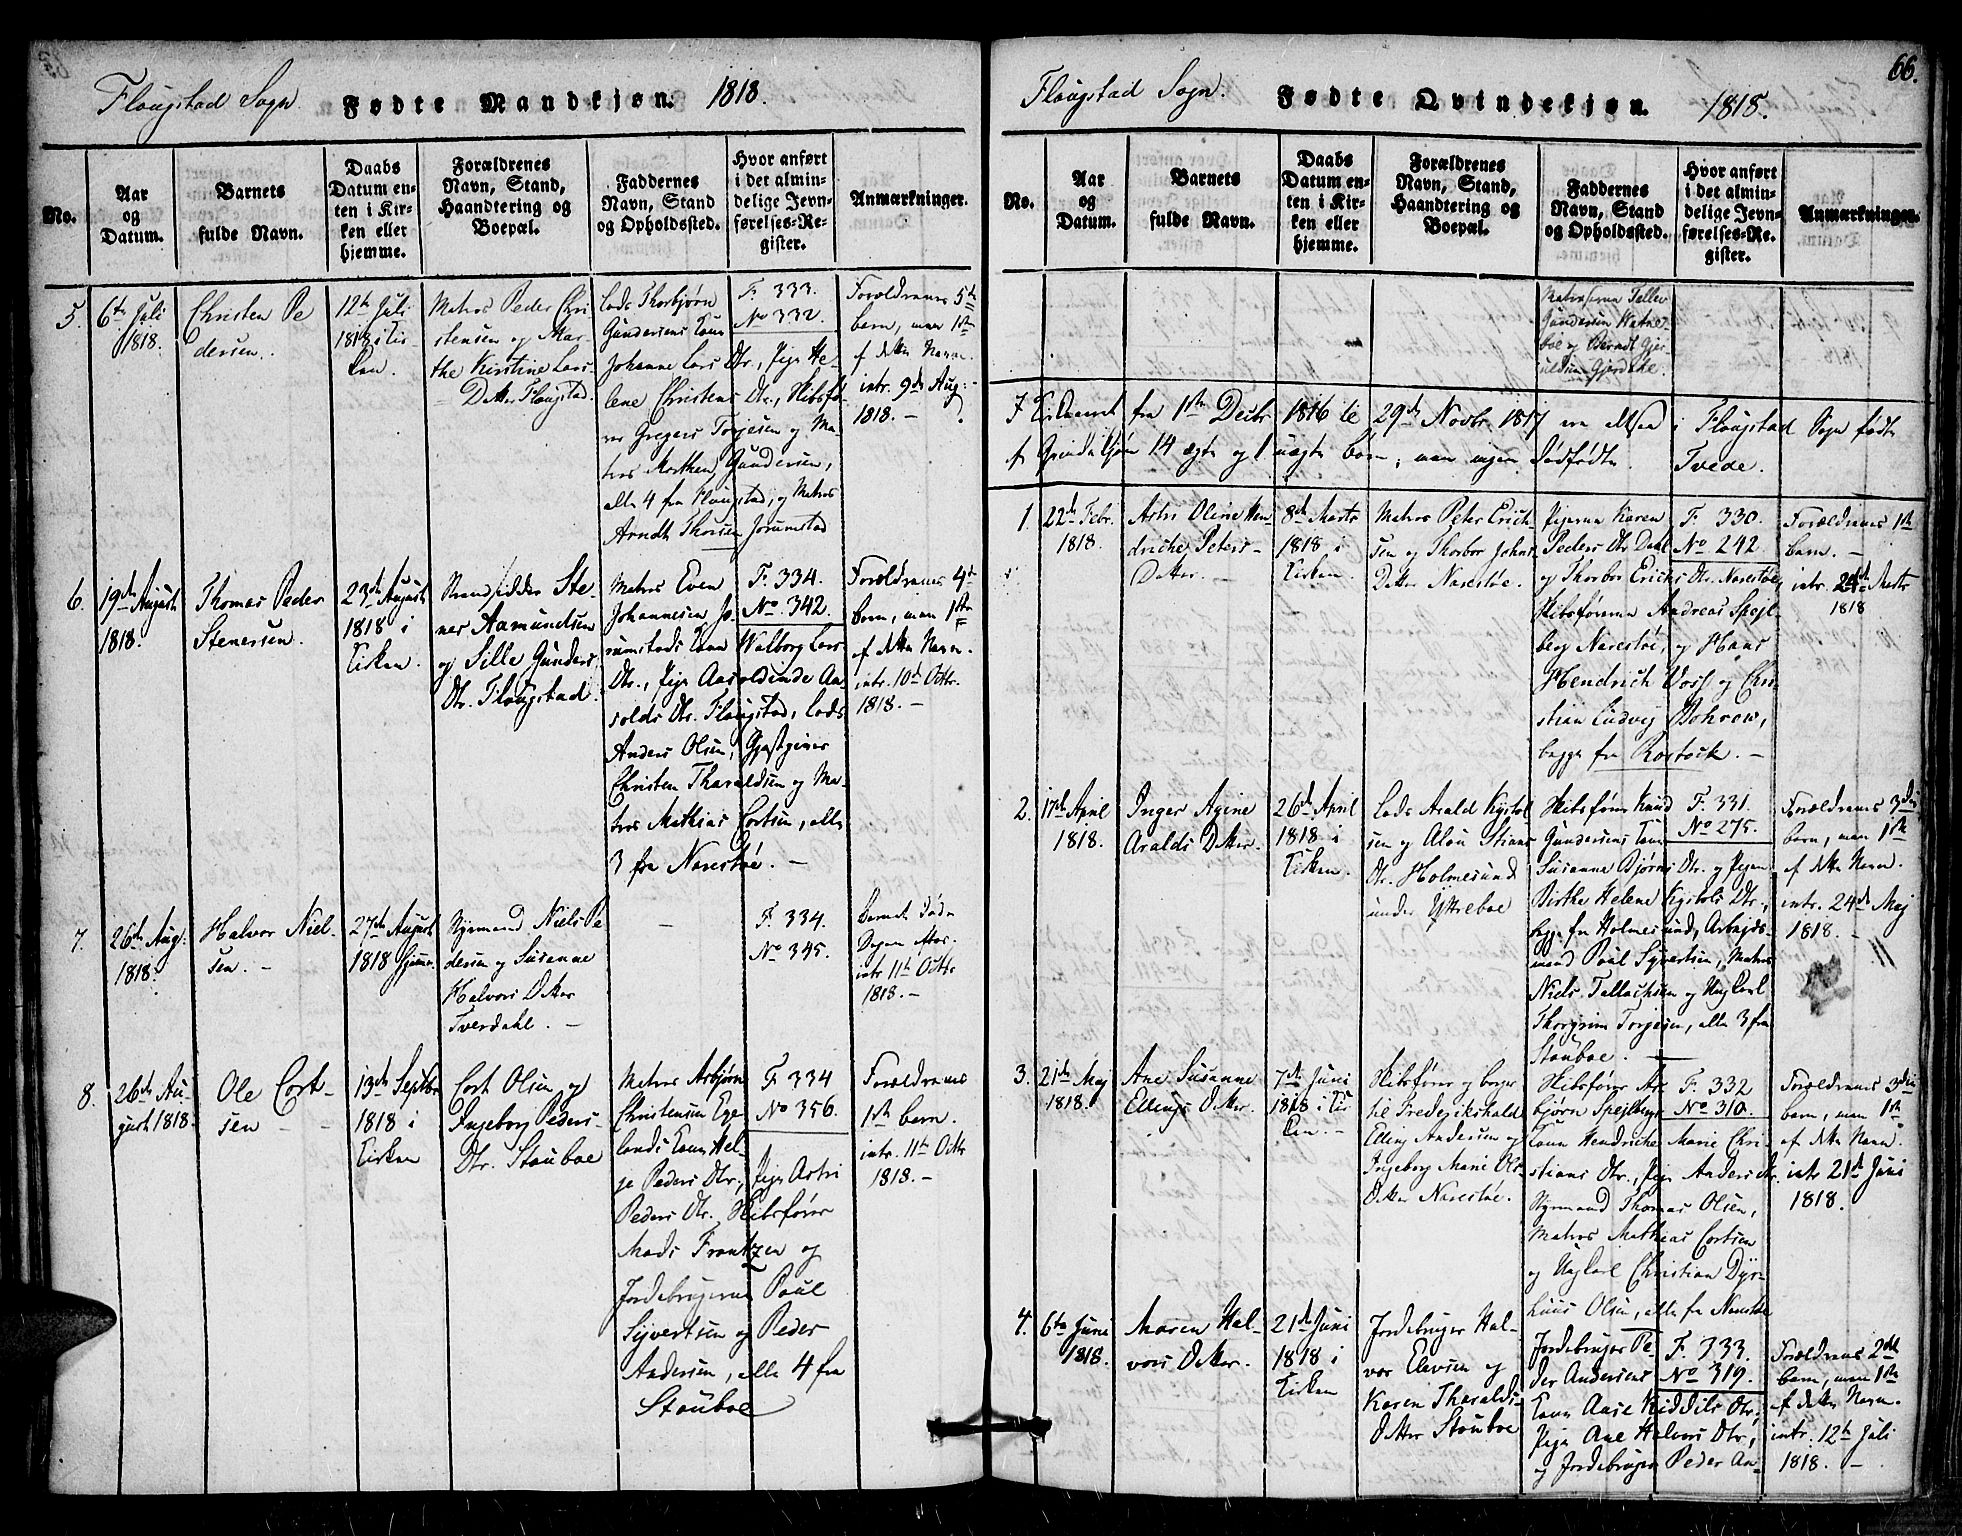 Flougstad Sogn.
Fødte Mandkjøn. 1818.
No.
Aar
og
Datum.
Barnets
fulde Navn.
Daabs
Datum en-
ten i Kir-
ken eller
hjemme.
Forældrenes
Navn, Stand,
Haandtering og
Boepæl.
Faddernes
Navn, Stand
og Opholdssted.
Hvor anført
i det almin-
delige Jevn-
førelses-Re-
gister.
Anmærkninger.
5.
6te Juli
1818.
Christen Pe
dersen.
12te Juli
1818 i Kir
ken.
Matros Peder Chri
stensen og Mar-
the Kirstine Lars
Datter Flougstad.
Lods Thorbjørn
Gundersens Kone
Johanne Lars Dtr., Pige He-
lene Christens Dtr., Skibsfø-
rer Gregers Torjesen og Ma-
tros Morthen Gundersen,
alle 4 fra Flougstad, og Matros
Arndt Thorsen Jorumstad
F. 333.
No 332.
Forældrenes 5te
barn, men 1ste
af dette Navn.
intr. 9de Aug:
1818. —
6.
19de August
1818.
Thomas Peder
Stenersen.
23de August
1818 i
Kirken.
Strandsidder Ste-
ner Aamundsen
og Sille Gunders
Dtr. Flougstad.
Matros Even
Johannesen Jo-
rumstads Kone Walborg Lars
Dtr., Pige Aasoldinde Aa-
solds Dtr. Flougstad, Lods
Anders Olsen, Gjestgiver
Christen Tharaldsen og Ma-
tros Mathias Cortsen, alle
3 fra Narestøe. —
F. 334.
No. 342.
Forældrenes 4de
barn, men 1ste
af dette Navn.
intr. 10de Octbr.
1818. —
7.
26de Aug:
1818.
Halvor Niel-
sen. —
27de August
1818 hjemme.
Styrmand Niels Pe
dersen og Susanne
Halvors Datter
Tverdahl. —
—
F. 334.
No 345.
Barnet døde
Dagen efter.
intr. 11te Octbr
1818. —
8.
26de Au-
gust 1818.
Ole Cort-
sen — —
13de Septbr
1818 i
Kirken
Cort Olsen og
Ingeborg Peders
Dtr. Stouboe
Matros Asbjørn
Christensen Ege-
lands Kone Hel-
je Peders Dtr., Pige Astri
Peders Dtr. Skibsfører
Mads Frantzen og
Jordebrugerne Poul
Syvertsen og Peder
Andersen, alle 4 fra
Stouboe
F. 334
No 356.
Forældrenes
1ste barn.
intr. 11te Octbr
1818. —
66.
Flougstad Sogn.
Fødte Qvindekjøn. 1818.
No.
Aar
og
Datum.
Barnets
fulde Navn.
Daabs
Datum en-
ten i Kir-
ken eller
hjemme.
Forældrenes
Navn, Stand,
Haandtering og
Boepæl.
Faddernes
Navn, Stand
og Opholdssted.
Hvor anført
i det almin-
delige Jevn-
førelses-Re-
gister.
Anmærkninger.
Matroserne Tellev
Gundersen Watne-
boe og Berndt Gjer-
uldsen Gjerdahl.
I Kirkeaaret fra 1ste Decbr 1816 til 29de Novbr. 1817 ere altsaa i Flougstad Sogn fødte
af Qvindekjøn 14 ægte og 1 uægte børn, men ingen dødfødte. Tvede.
1.
22de Febr.
1818.
Astri Oline Hen-
driche Peters-
Datter. —
8de Marts
1818 i
Kirken.
Matros Peter Erich-
sen og Thorbor Johns
Datter Narestøe.
Pigerne Karen
Peders Dtr Dahl
og Thorbor Erichs Dtr. Narestøe,
Skibsførerne Andreas Spejl-
berg Narestøe, og Hans
Hendrich Voss og Chri-
stian Ludvig Bohrow,
begge fra Rostock. —
F. 330.
No 242.
Forældrenes 1ste
barn. —
intr. 24de Marts
1818
2.
17de April
1818.
Inger Agine
Aralds Datter.
26de April
1818 i
Kirken.
Lods Arald Kistol
sen og Alou Stians
Dtr. Holmesund
under Yttreboe
Skibsfører Knud
Gundersens Kone
Susanne Bjørns Dtr. og Pigen
Birthe Helene Kistols Dtr.,
begge fra Holmesund, Arbejds-
mand Poul Syvertsen, Matros
Niels Tellachsen og Ungkarl
Thorgrim Torjesen, alle 3 fra
Stouboe. —
F. 331.
No 275.
Forældrenes 3die
barn, men 1ste
af dette Navn.
intr. 24de Maj
1818. —
3.
21de Maj
1818.
Ane Susanne
Ellings Datter.
7de Juni
1818 i Kir
ken. —
Skibsfører og borger
til Frederikshald
Elling Andersen og
Ingeborg Marie Ols-
Datter Narestøe.
Skibsfører As-
bjørn Spejlbergs
Kone Hendriche Marie Chri-
stians Dtr., Pige Anders Dtr.
Styrmand Thomas Olsen,
Matros Mathias Cortsen
og Ungkarl Christian Dyr-
huus Olsen, alle fra Narestøe
F. 332
No 310.
Forældrenes 3die
barn, men 1ste
af dette Navn.
intr 21de Juni
1818.
4.
6te Juni
1818.
Maren Hal-
vors Datter.
21de Juni
1818 i
Kirken
Jordebruger Hal-
vor Elevsen og
Karen Tharalds-
Datter Stouboe
Jordebruger Pe-
der Andersens
Kone Aase Kiddils Dtr.,
Pige Ane Halvors Dtr.,
og Jordebruger Peder An-
F. 333.
No 319.
Forældrenes 2det
barn, men 1ste
af dette Navn.
intr. 12te Juli
1818. —